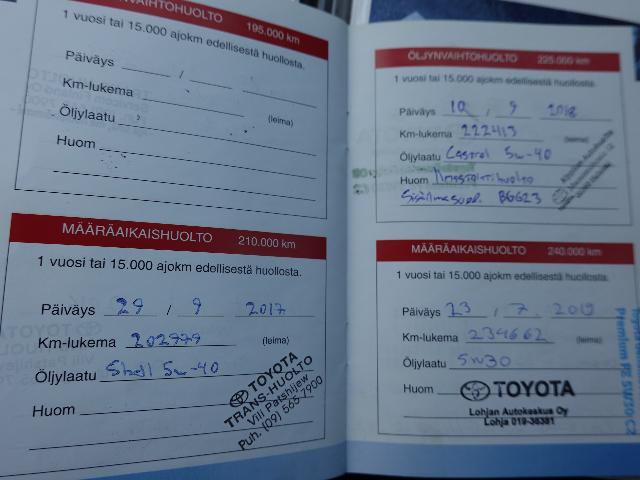 ÖLJYNVAIHTOHUOLTO 195.000 km
1 vuosi tai 15.000 ajokm edellisestä huollosta.
Päiväys / /
Km-lukema
Öljylaatu (leima)
Huom
MÄÄRÄAIKAISHUOLTO 210.000 km
1 vuosi tai 15.000 ajokm edellisestä huollosta.
Päiväys 29 / 9 2017
Km-lukema 202979
Öljylaatu Shell 5w-40 (leima)
Huom
TOYOTA
TRANS-HUOLTO
Vili Patshijew
Puh. (09) 565 7900
ÖLJYNVAIHTOHUOLTO 225.000 km
1 vuosi tai 15.000 ajokm edellisestä huollosta.
Päiväys 10 / 9 2018
Km-lukema 222413
Öljylaatu Castrol 5w-40 (leima)
Huom
BGG23
MÄÄRÄAIKAISHUOLTO 240.000 km
1 vuosi tai 15.000 ajokm edellisestä huollosta.
Päiväys 23 / 7 2019
Km-lukema 234662
Öljylaatu 5W30 (leima)
Huom
TOYOTA
Lohjan Autokeskus Oy
Lohja 019-36381